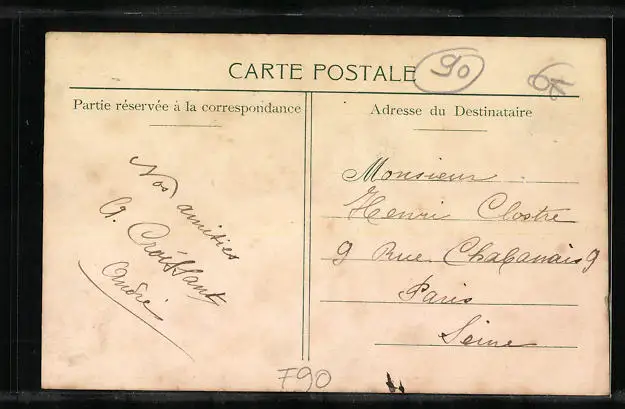 CARTE POSTALE
90
Partie réservée à la correspondance
Adresse du Destinataire
Nos amitiés
G. Croissant
André
Monsieur
Henri Clostre
9 Rue Chabanais 9
Paris
Seine
F90